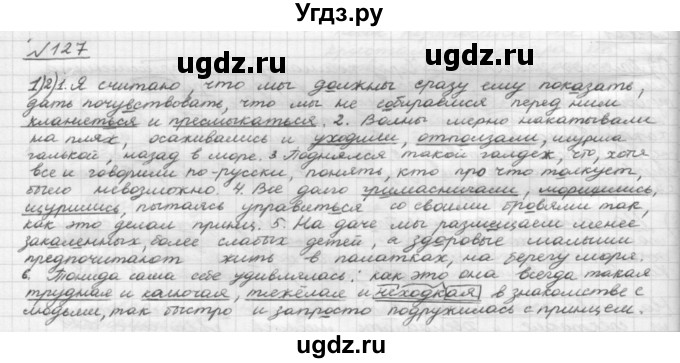 Угдз.ру
№127
gdz.ru gdz.ru
1)2)1. Я считаю, что мы должны сразу ему показать,
дать почувствовать, что мы не собираемся перед ним
кланяться и пресмыкаться. 2. Волны мерно накатывали
на пляж, осаживались и уходили, отползали, шурша
галькой, назад в море. 3. Поднялся такой галдёж, что, хотя
все и говорили по-русски, понять, кто про что толкует,
было невозможно. 4. Все долго гримасничали, морщились,
щурились, пытаясь управиться со своими бровями так,
как это делал принц. 5. На даче мы размещаем менее
закаленных, более слабых детей, а здоровые малыши
предпочитают жить в палатках, на берегу моря.
6. Тонида сама себе удивлялась: как это она всегда такая
трудная и колючая, тяжёлая и несходкая в знакомстве с
людьми, так быстро и запросто подружилась с принцем.
gdz.ru gdz.ru
Угдз.ру